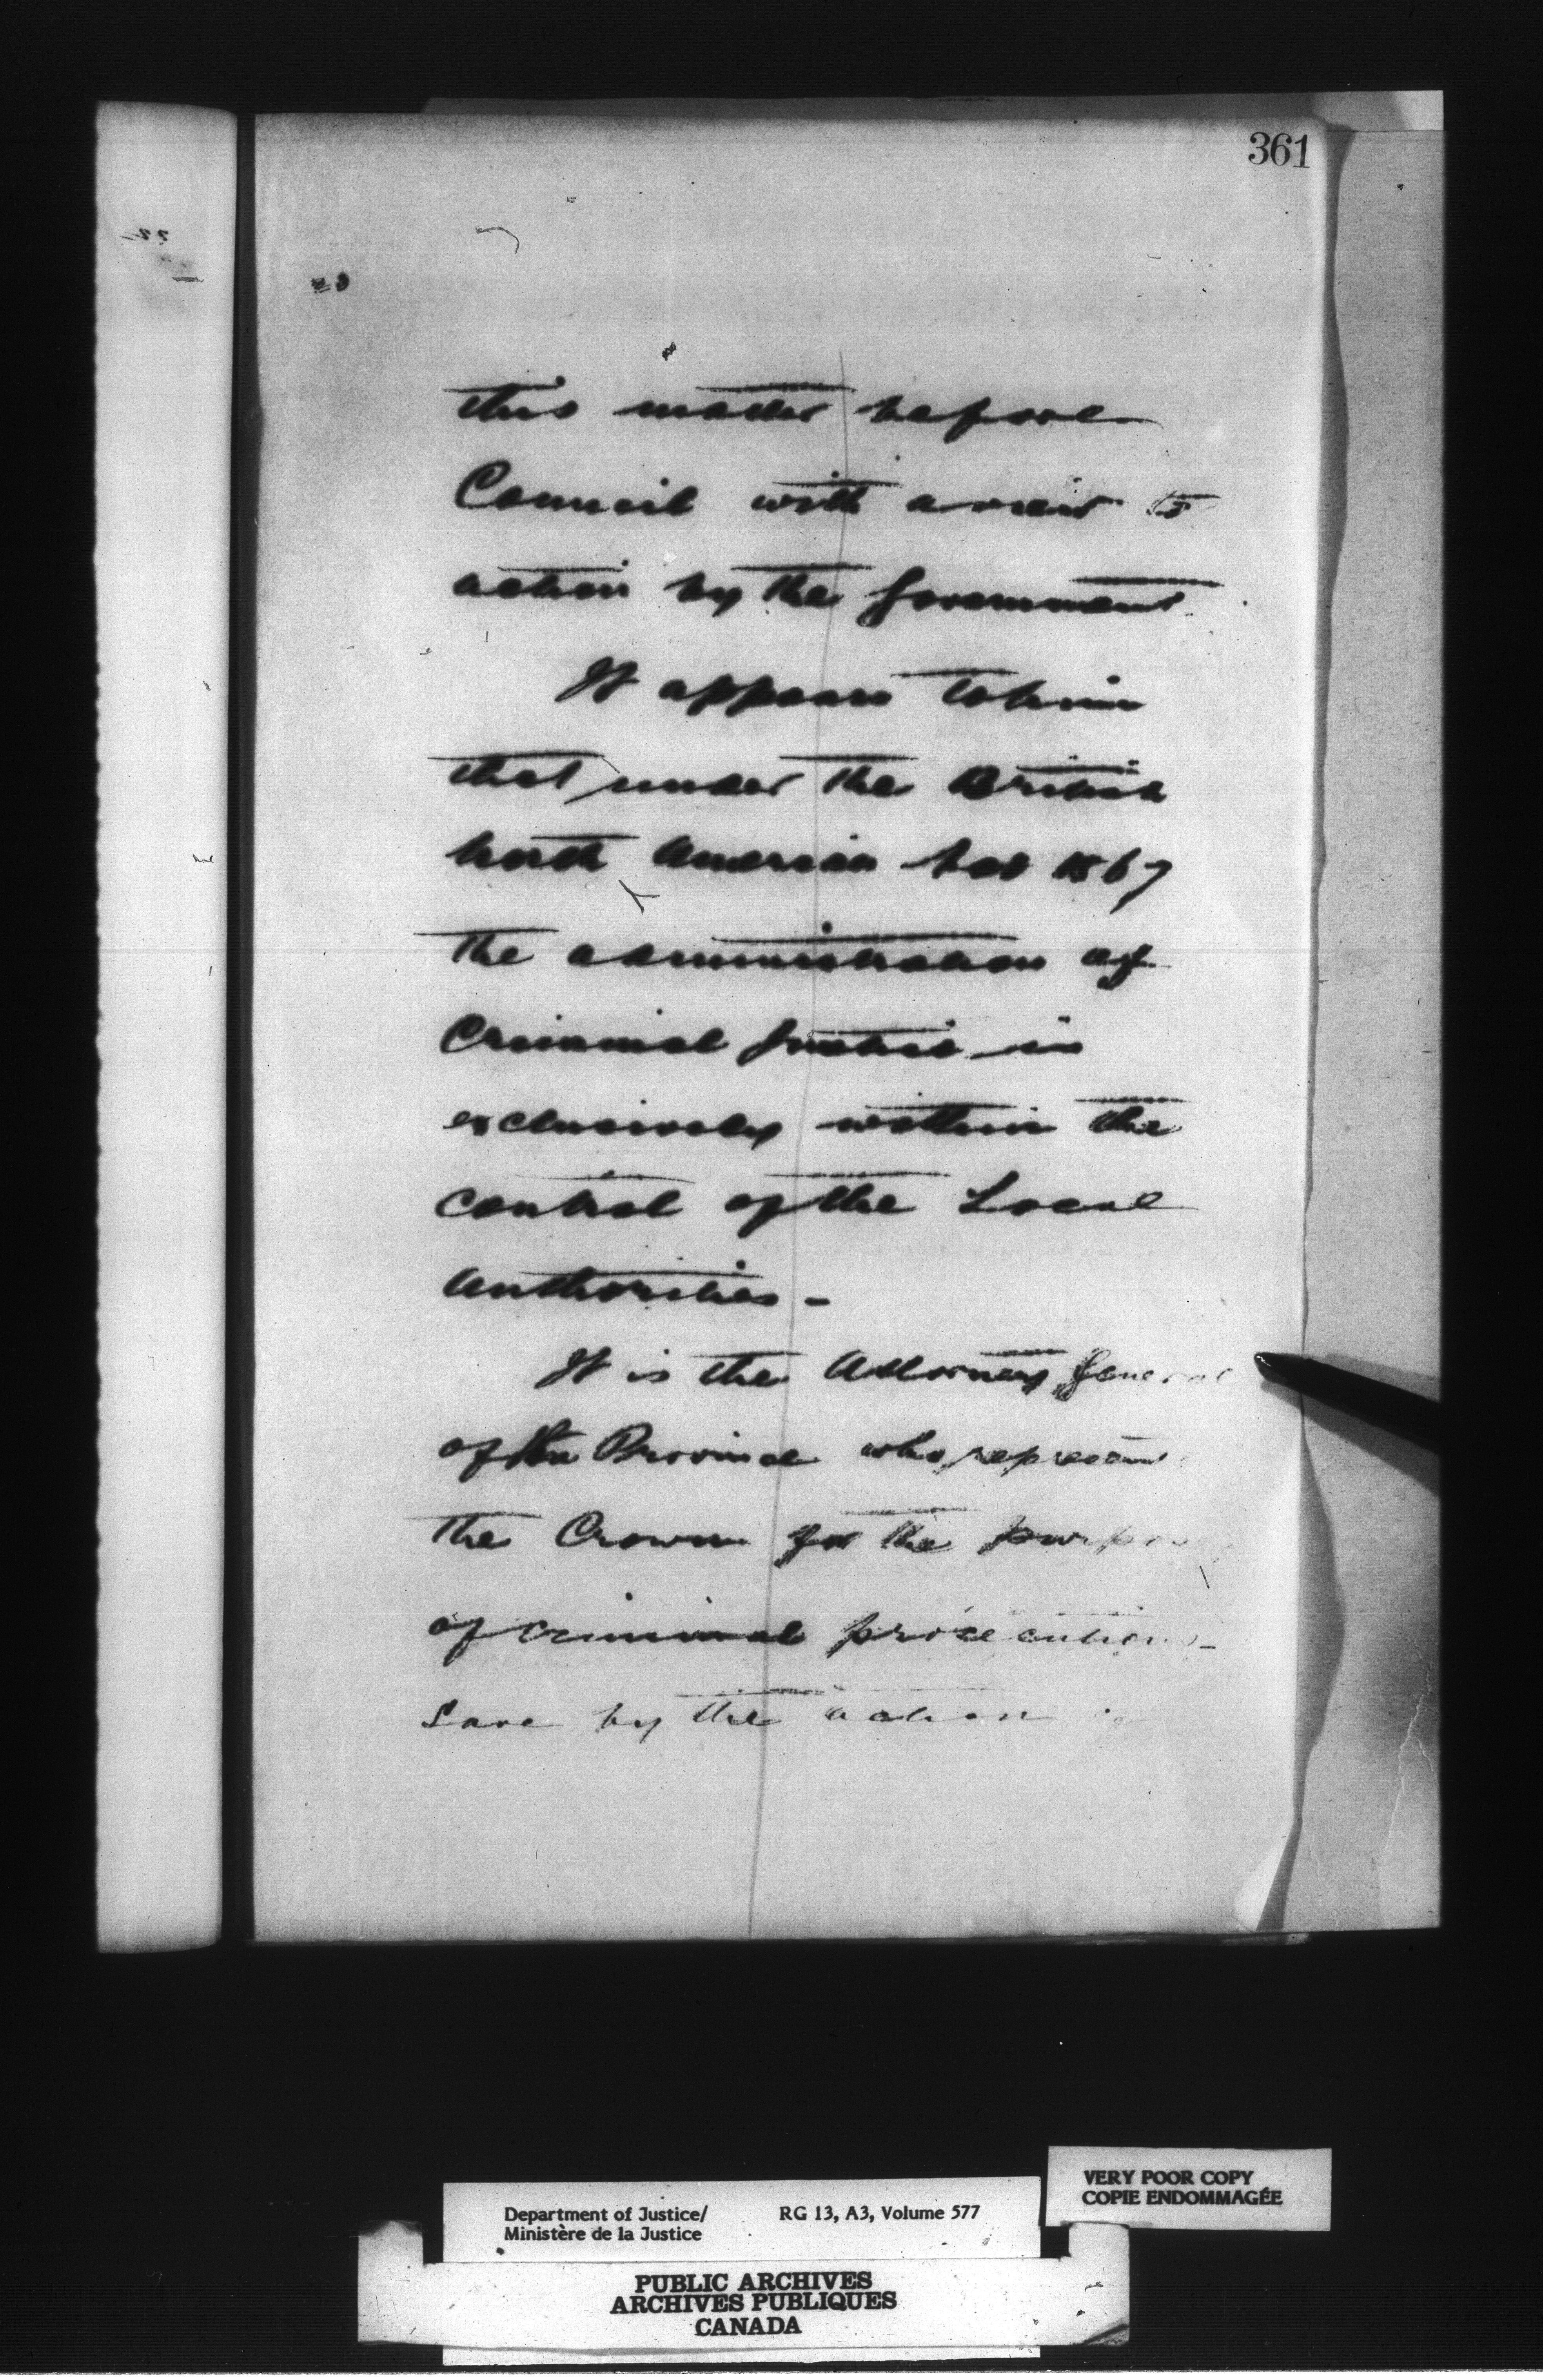 361
this matter before
Council with a view to
action by the Government.
It appears to him
that under the British
North America Act 1867
the administration of
Criminal Justice is
exclusively within the
control of the Local
Authorities -
It is the Attorney General
of the Province who represents
the Crown for the purpose
of criminal prosecutions -
Save by the action of
VERY POOR COPY
COPIE ENDOMMAGÉE
Department of Justice/ RG 13, A3, Volume 577
Ministère de la Justice
PUBLIC ARCHIVES
ARCHIVES PUBLIQUES
CANADA